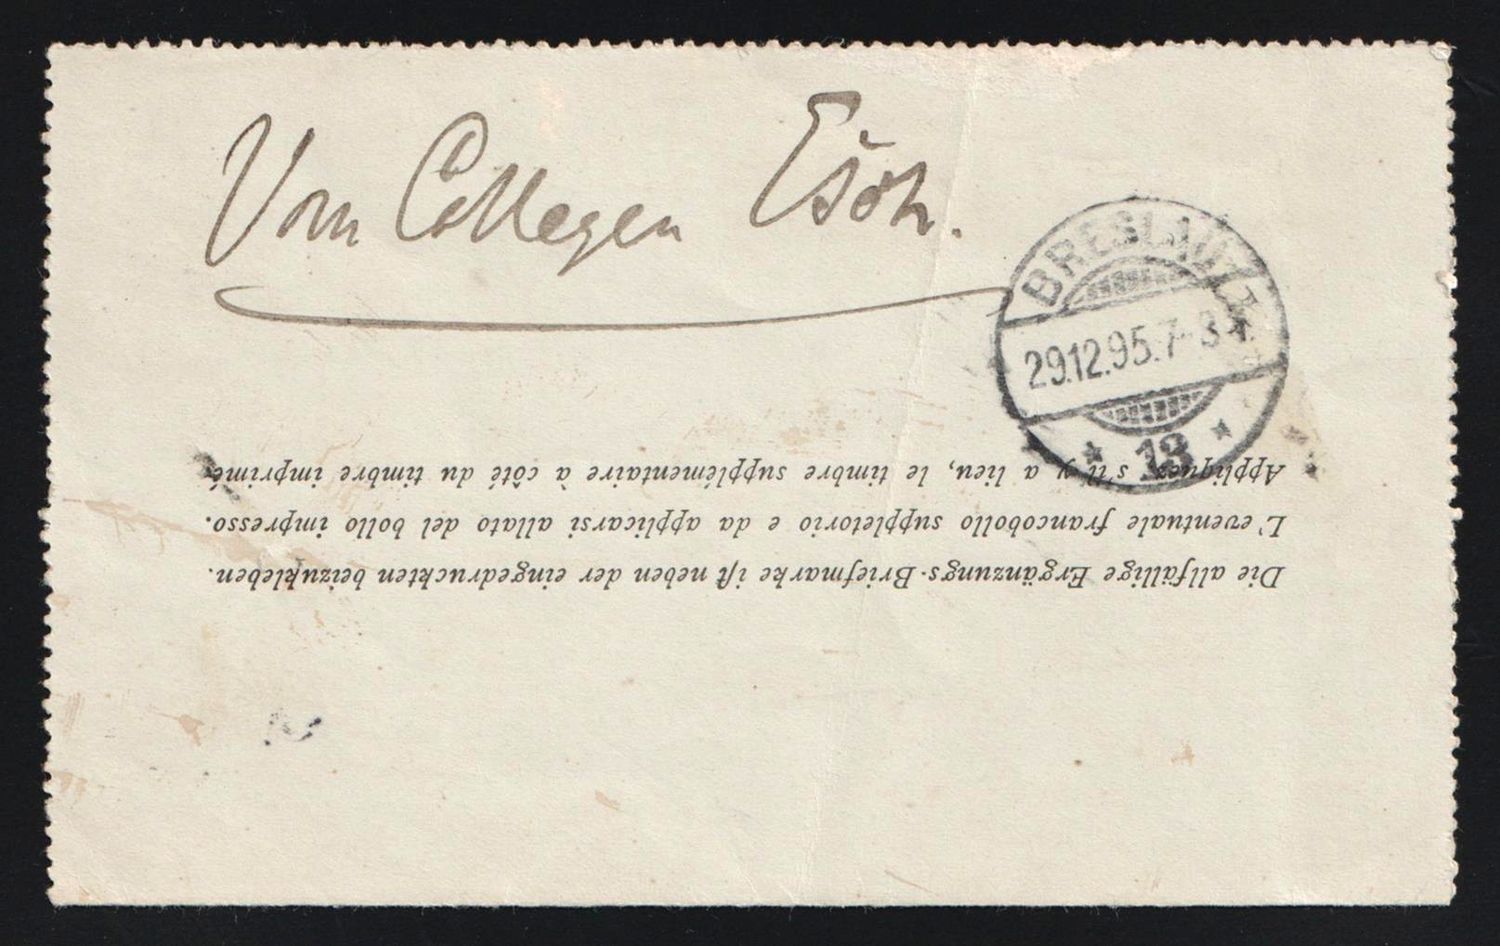 Vom Collegen
BRESLAU
29.12.95.7-8
* 13 *
Appliquez, s'il y a lieu, le timbre supplémentaire à côté du timbre imprimé
L'eventuale francobollo suppletorio e da applicarsi allato del bollo impresso.
Die allfällige Ergänzungs-Briefmarke iſt neben der eingedruckten beizukleben.